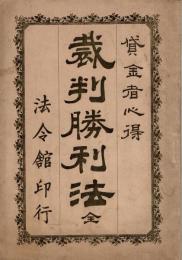 貸金者心得
裁判勝利法 全
法令館印行